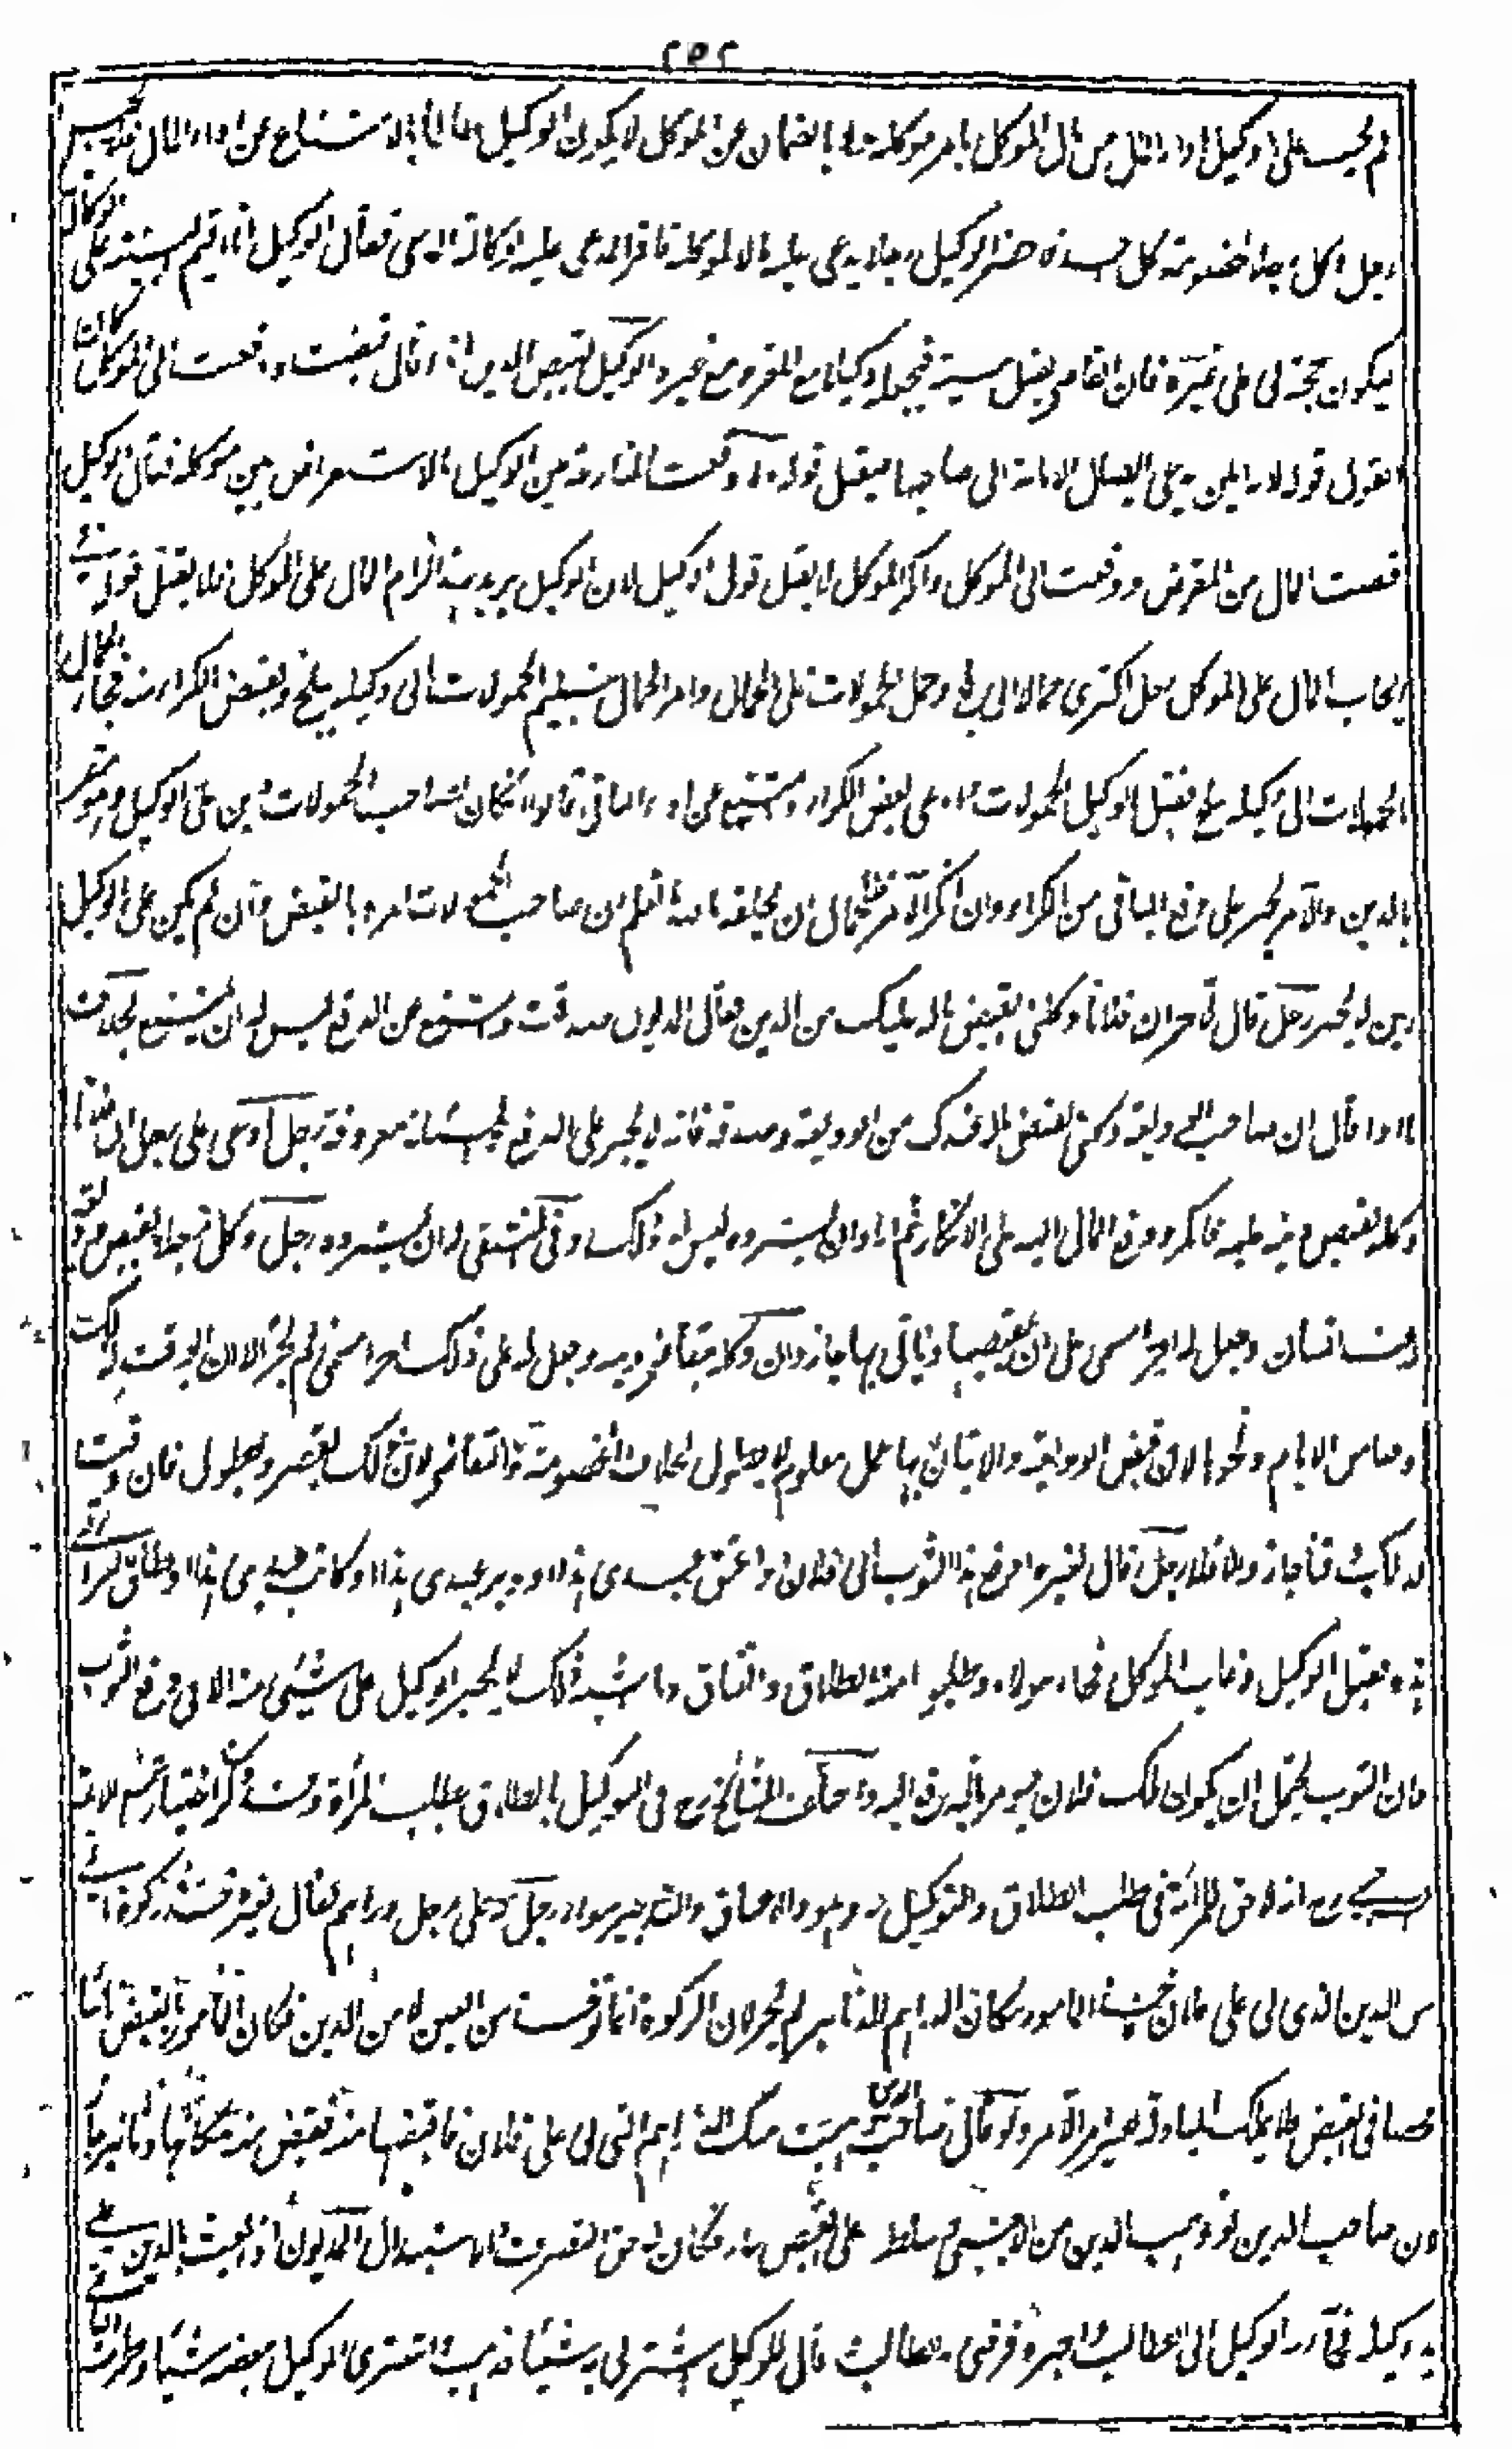 ٢٩٢
لم يجب على الوكيل اداء المال من مال الموكل بامر موكله ولا بالضمان عن الموكل لا يكون الوكيل ظالما بالامتناع عن اداء المال فلا يحبس
رجل وكل رجلا بخصومة كل احضر الوكيل رجلا يدعى عليه مالا لموكله فاقر المدعى عليه بوكالة المدعى فقال الوكيل انا اقيم البينة على الوكالة
ليكون حجة لى على غيره فان القاضى يقبل بينته فيجعله وكيلا مع المقر ومع غيره الوكيل بقبض الدين اذا قال قبضت ودفعت الى الموكل كان
القول قوله لانه امين يدعى ايصال الامانة الى صاحبها فيقبل قوله ولو وقعت المنازعة بين الوكيل بالاستقراض وبين موكله فقال الوكيل
قبضت المال من المقرض ودفعت الى الموكل وانكر الموكل لا يقبل قول الوكيل لان الوكيل يريد بهذا الزام المال على الموكل فلا يقبل قوله فى
ايجاب المال على الموكل رجل اكترى جمالا الى بلخ وحمل الحمولات على الجمال وامر الجمال بتسليم الحمولات الى وكيله ببلخ وبقبض الكراء منه فجاء الجمال
بالحمولات الى وكيله ببلخ فقبل الوكيل الحمولات وادى بعض الكراء وامتنع عن اداء الباقى قالوا ان كان لصاحب الحمولات دين على الوكيل وهو مقر
بالدين والامر يجبر على دفع الباقى من الكراء وان انكر الامر فللجمال ان يحلفه بالله ما تعلم ان صاحب الحمولات امره بالقبض وان لم يكن على الوكيل
دين لا يجبر رجل قال لاخر ان فلانا وكلنى بقبض ماله عليك من الدين فقال المديون صدقت وامتنع عن الدفع ليس له ان يمتنع بخلاف
ما اذا قال ان صاحب الوديعة وكلنى بقبض ماله عندك من الوديعة وصدقه فانه لا يجبر على الدفع والمسئلة معروفة رجل ادعى على رجل ان فلانا
وكله بقبض دينه عليه فانكر ودفع المال اليه على الانكار ثم اراد ان يسترده ليس له ذلك وفى المنتقى له ان يسترده رجل وكل رجلا بقبض وديعة
عند انسان وجعل له اجرا مسمى على ان يقبضها ويأتى بها جاز وان وكله بتقاضى دينه وجعل له على ذلك اجرا مسمى لم يجز الا ان يوقت لذلك
وقتا من الايام ونحوها لان قبض الوديعة والاتيان بها عمل معلوم لا يطول بخلاف الخصومة والتقاضى لان ذلك يقصر ويطول فان وقت
لذلك وقتا جاز والا فلا رجل قال لغيره ادفع هذا الثوب الى فلان او اعتق عبدى هذا او دبر عبدى هذا او كاتب عبدى هذا او طلق امرأتى
هذه فقبل الوكيل وغاب الموكل فجاء هؤلاء وطلبوا منه الطلاق والعتاق وما اشبه ذلك لا يجبر الوكيل على شيئ منه الا فى دفع الثوب
فان الثوب يحتمل ان يكون ملك فلان فيؤمر بالدفع اليه واختلف المشائخ رح فى التوكيل بالطلاق بطلب المرأة
رح انه لا حق للمرأة فى طلب الطلاق والتوكيل به وهو والاعتاق والتدبير سواء رجل له على رجل دراهم فقال لغيره خذ زكوة مالى
من الدين الذى لى على فلان فاخذ المامور مكان الدراهم الدنانير لم يجز لان الزكوة انما وقعت من العين لا من الدين فكان المامور بالقبض نائبا
محضا فى القبض فلا يملك المبادلة بغير امر الآمر ولو قال صاحب الدين وهبت منك الدراهم التى لى على فلان فاقبضها منه فقبض منه مكانها دنانير جاز
لان صاحب الدين لو وهب الدين من الاجنبى وسلطه على القبض جاز فكان له حق التصرف والاستبدال المديون اذا بعث بالدين على
يد وكيله فجاء به الوكيل الى الطالب واخبره فرضى به الطالب وقال للوكيل اشتر لى به شيئا فذهب واشترى الوكيل ببعضه شيئا وطر منه الباقى